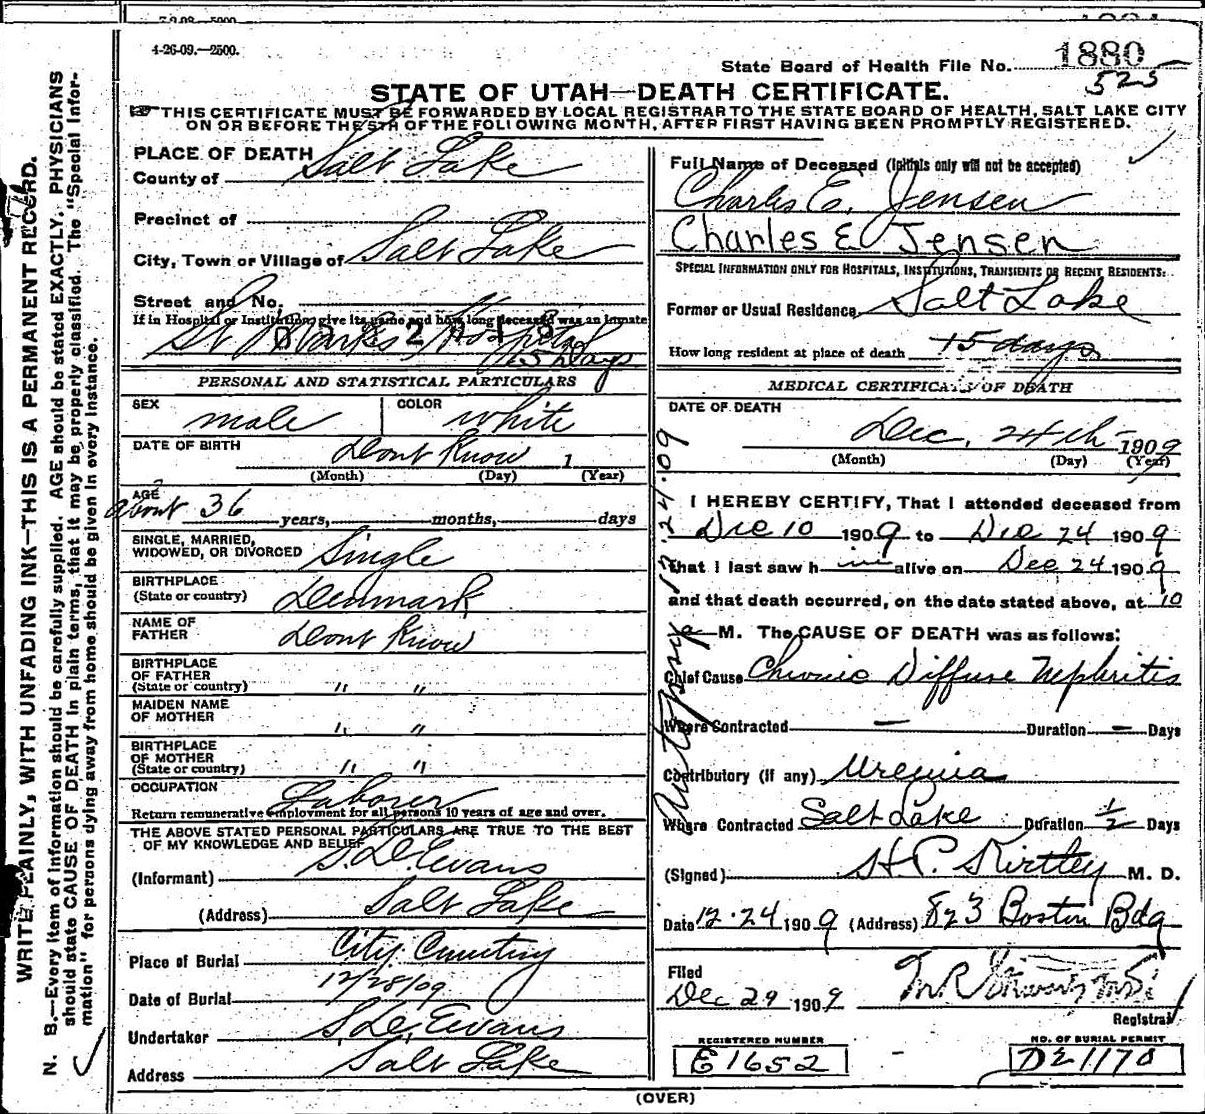 4-26-09.—2500.
State Board of Health File No. 1880
525
STATE OF UTAH—DEATH CERTIFICATE.
THIS CERTIFICATE MUST BE FORWARDED BY LOCAL REGISTRAR TO THE STATE BOARD OF HEALTH, SALT LAKE CITY
ON OR BEFORE THE 5TH OF THE FOLLOWING MONTH, AFTER FIRST HAVING BEEN PROMPTLY REGISTERED.
WRITE PLAINLY, WITH UNFADING INK—THIS IS A PERMANENT RECORD.
N. B.—Every item of information should be carefully supplied. AGE should be stated EXACTLY. PHYSICIANS
should state CAUSE OF DEATH in plain terms, that it may be properly classified. The "Special Infor-
mation" for persons dying away from home should be given in every instance.
PLACE OF DEATH
County of Salt Lake
Precinct of
City, Town or Village of Salt Lake
Street and No.
If in Hospital or Institution, give its name and how long deceased was an inmate
St Marks Hospital
15 Days
PERSONAL AND STATISTICAL PARTICULARS
SEX male COLOR white
DATE OF BIRTH Dont Know 1
(Month) (Day) (Year)
AGE
about 36 years, months, days
SINGLE, MARRIED,
WIDOWED, OR DIVORCED Single
BIRTHPLACE
(State or country) Denmark
NAME OF
FATHER Dont Know
BIRTHPLACE
OF FATHER
(State or country) " "
MAIDEN NAME
OF MOTHER " "
BIRTHPLACE
OF MOTHER
(State or country) " "
OCCUPATION Laborer
Return remunerative employment for all persons 10 years of age and over.
THE ABOVE STATED PERSONAL PARTICULARS ARE TRUE TO THE BEST
OF MY KNOWLEDGE AND BELIEF
(Informant) S. D. Evans
(Address) Salt Lake
Place of Burial City Cemetery
Date of Burial 12/28/09
Undertaker S. D. Evans
Address Salt Lake
Full Name of Deceased (Initials only will not be accepted)
Charles E. Jensen
Charles E Jensen
SPECIAL INFORMATION ONLY FOR HOSPITALS, INSTITUTIONS, TRANSIENTS OR RECENT RESIDENTS:
Former or Usual Residence Salt Lake
How long resident at place of death 15 days
MEDICAL CERTIFICATE OF DEATH
DATE OF DEATH
Dec. 24th 1909
(Month) (Day) (Year)
I HEREBY CERTIFY, That I attended deceased from
Dec 10 1909 to Dec 24 1909
that I last saw him alive on Dec 24 1909
and that death occurred, on the date stated above, at 10
M. The CAUSE OF DEATH was as follows:
Chief Cause Chronic Diffuse Nephritis
Where Contracted — Duration — Days
Contributory (if any) Uremia
Where Contracted Salt Lake Duration 1/2 Days
(Signed) H. P. Kirtley M. D.
Date 12-24 1909 (Address) 823 Boston Bdg
Autopsy 12.24.109
Filed
Dec 29 1909
Registrar
REGISTERED NUMBER
E1652
NO. OF BURIAL PERMIT
D21170
(OVER)